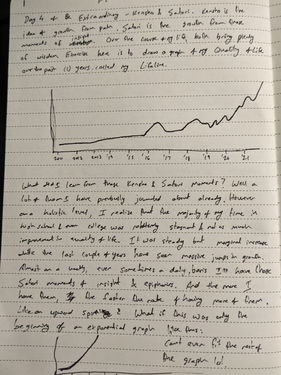 Day 4 of Be Extraordinary - Kensho & Satori. Kensho is the
idea of growth from pain. Satori is the growth from these
moments of insight. Over the course of my life, both bring plenty
of wisdom. Exercise here is to draw a graph of my Quality of Life
over the past 10 years, called my Lifeline.
2011 2012 2013 '14 '15 '16 '17 '18 '19 '20 '21
What did I learn from these Kensho & Satori moments? Well a
lot of them I have previously journaled about already. However
on a holistic level, I realize that the majority of my time in
high school & even college was relatively stagnant & not as much
improvement in quality of life. It was steady but marginal increase
while the last couple of years have seen massive jumps in growth.
Almost on a weekly, even sometimes a daily, basis I have these
Satori moments of insight & epiphanies. And the more I
have them, the faster the rate of having more of them.
Like an upward What if this was only the
beginning of an exponential graph like this:
Can't even fit the rest of
the graph lol